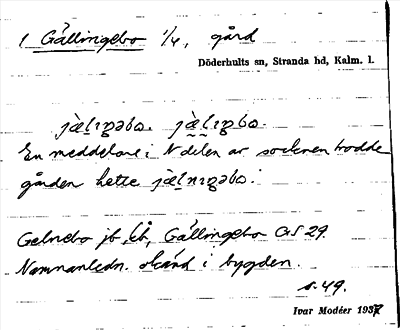 1 Gällingebo 1/4, gård
Döderhults sn, Stranda hd, Kalm. l.
jæ̀lɪŋəbo. jæ̀lɪŋbo.
En meddelare i N delen av socknen trodde
gården hette jæ̀lnɪŋəbo.
Gelnebo jb, Gällingebo GS 29.
Namnanledn. okänd i bygden.
s. 49.
Ivar Modéer 1937